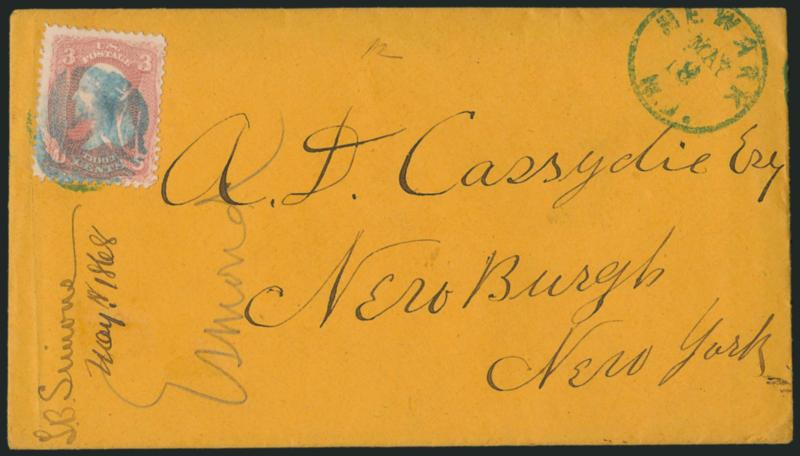 3 U.S. 3
POSTAGE
THREE
CENTS
NEWARK
N.J.
MAY
18
A. D. Cassydie Esq
New Burgh
New York
S.B. Simone
May 1868